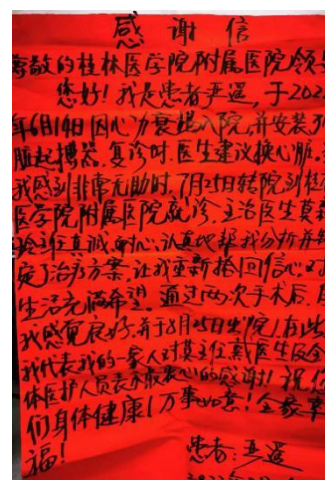 感谢信
尊敬的桂林医学院附属医院领导
您好!我是患者严遥,于202
年6月14日因心力衰竭入院,并安装了
脏起搏器.复诊时.医生建议换心脏.
我感到非常无助时.7月25日转院到桂
医学院附属医院就诊.主治医生莫新
玲主任真诚.耐心.认真地帮我分析并
定治疗方案.让我重新拾回信心.对
生活充满希望.通过两次手术后,
我感觉良好.并于8月25日出院,在此
我代表我的一家人对莫主任戴医生及全
体医护人员表示最衷心的感谢!祝你
们身体健康!万事如意!全家幸
福!
患者:严遥